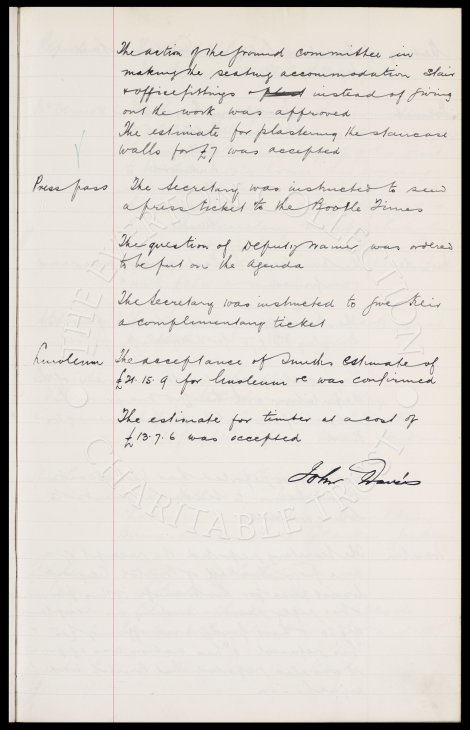 The action of the Ground Committee in
making the seating accommodation stair
& office fittings instead of giving
out the work was approved
The estimate for plastering the staircase
walls for £7 was accepted
Press pass The Secretary was instructed to send
a press ticket to the Bootle Times
The question of Deputy Trainer was ordered
to be put on the Agenda
The Secretary was instructed to give Weir
a complimentary ticket
Linoleum The acceptance of Smiths Estimate of
£21.15.9 for linoleum &c was confirmed
The estimate for timber at a cost of
£13.7.6 was accepted
John Davies
THE EVERTON COLLECTION
CHARITABLE TRUST